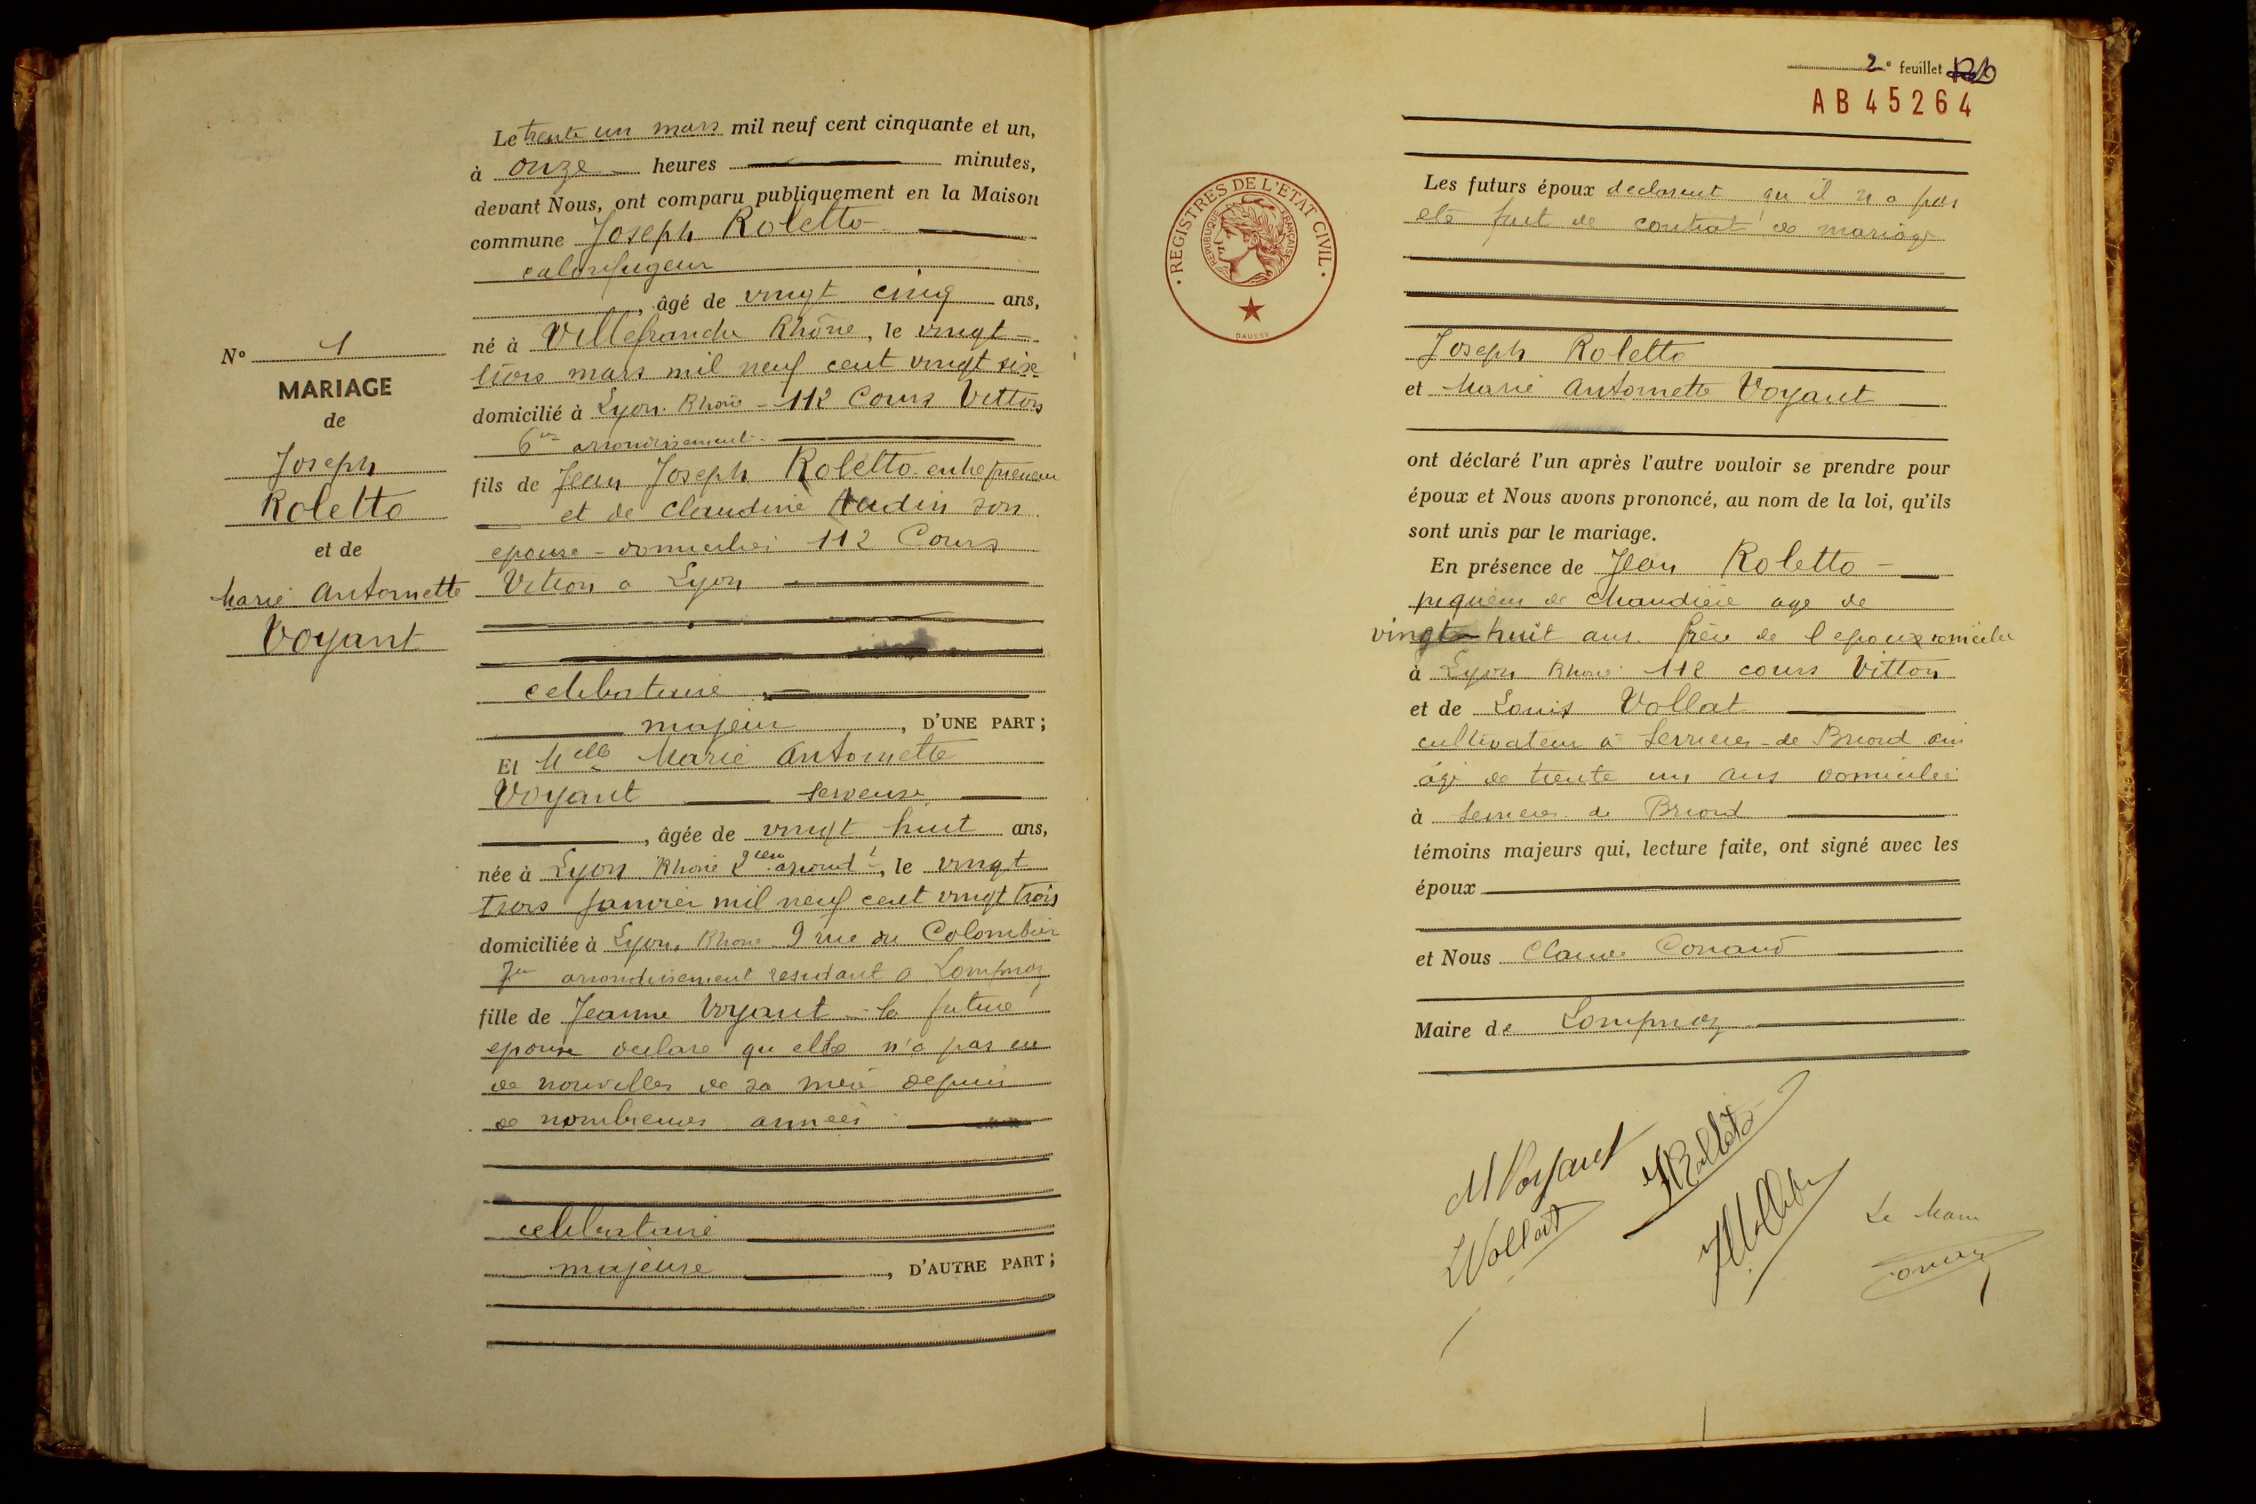 N° 1
MARIAGE
de
Joseph
Roletto
et de
Marie Antoinette
Voyant
Le trente un mars mil neuf cent cinquante et un,
à onze heures minutes,
devant Nous, ont comparu publiquement en la Maison
commune Joseph Roletto
calorifugeur
, âgé de vingt cinq ans,
né à Villefranche Rhône, le vingt
trois mars mil neuf cent vingt six
domicilié à Lyon Rhone - 112 Cours Vitton
6me arrondissement
fils de Jean Joseph Roletto entrepreneur
et de Claudine Audin son
epouse - domicilies 112 Cours
Vitton a Lyon
celibataire
majeur, D'UNE PART;
Et Melle Marie Antoinette
Voyant serveuse
, âgée de vingt huit ans,
née à Lyon Rhone 2eme arrondt, le vingt
trois janvier mil neuf cent vingt trois
domiciliée à Lyon, Rhone 9 rue du Colombier
7me arrondissement residant a Lompnaz
fille de Jeanne Voyant - la future
epouse declare qu elle n'a pas eu
de nouvelles de sa mere depuis
de nombreuses années
celibataire
majeure, D'AUTRE PART;
2e feuillet
AB45264
REGISTRES DE L'ETAT CIVIL
REPUBLIQUE FRANÇAISE
DAUSSY
Les futurs époux declarent qu il n a pas
ete fait de contrat de mariage
Joseph Roletto
et Marie Antoinette Voyant
ont déclaré l'un après l'autre vouloir se prendre pour
époux et Nous avons prononcé, au nom de la loi, qu'ils
sont unis par le mariage.
En présence de Jean Roletto
piqueur de chaudiere age de
vingt huit ans frère de l epoux domicilie
à Lyon Rhone 112 cours Vitton
et de Louis Vollat
cultivateur à Serrieres-de Briord Ain
âgé de trente un ans domicilié
à Serrieres de Briord
témoins majeurs qui, lecture faite, ont signé avec les
époux
et Nous Claude Conand
Maire de Lompnaz
M Voyant
JRolleto
Vollat
Le Maire
Conand